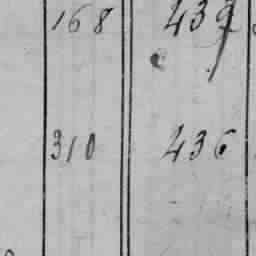 168 439
310 436